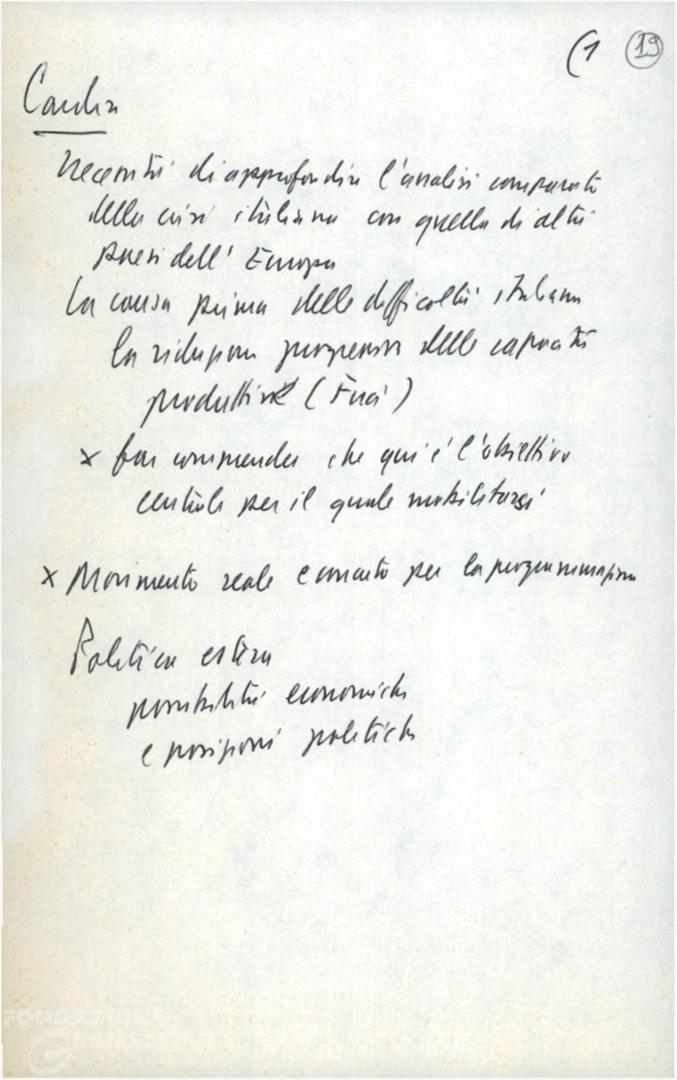 (1 19
Cardia
Necessità di approfondire l'analisi comparata
della crisi italiana con quella di altri
paesi dell'Europa
La causa prima delle difficoltà italiane
la riduzione progressiva delle capacità
produttive
x far comprendere che qui è l'obiettivo
centrale per il quale mobilitarsi
x Movimento reale e concreto per la programmazione
Politica estera
possibilità economiche
e posizioni politiche
FONDAZIONE
GRAMSCI